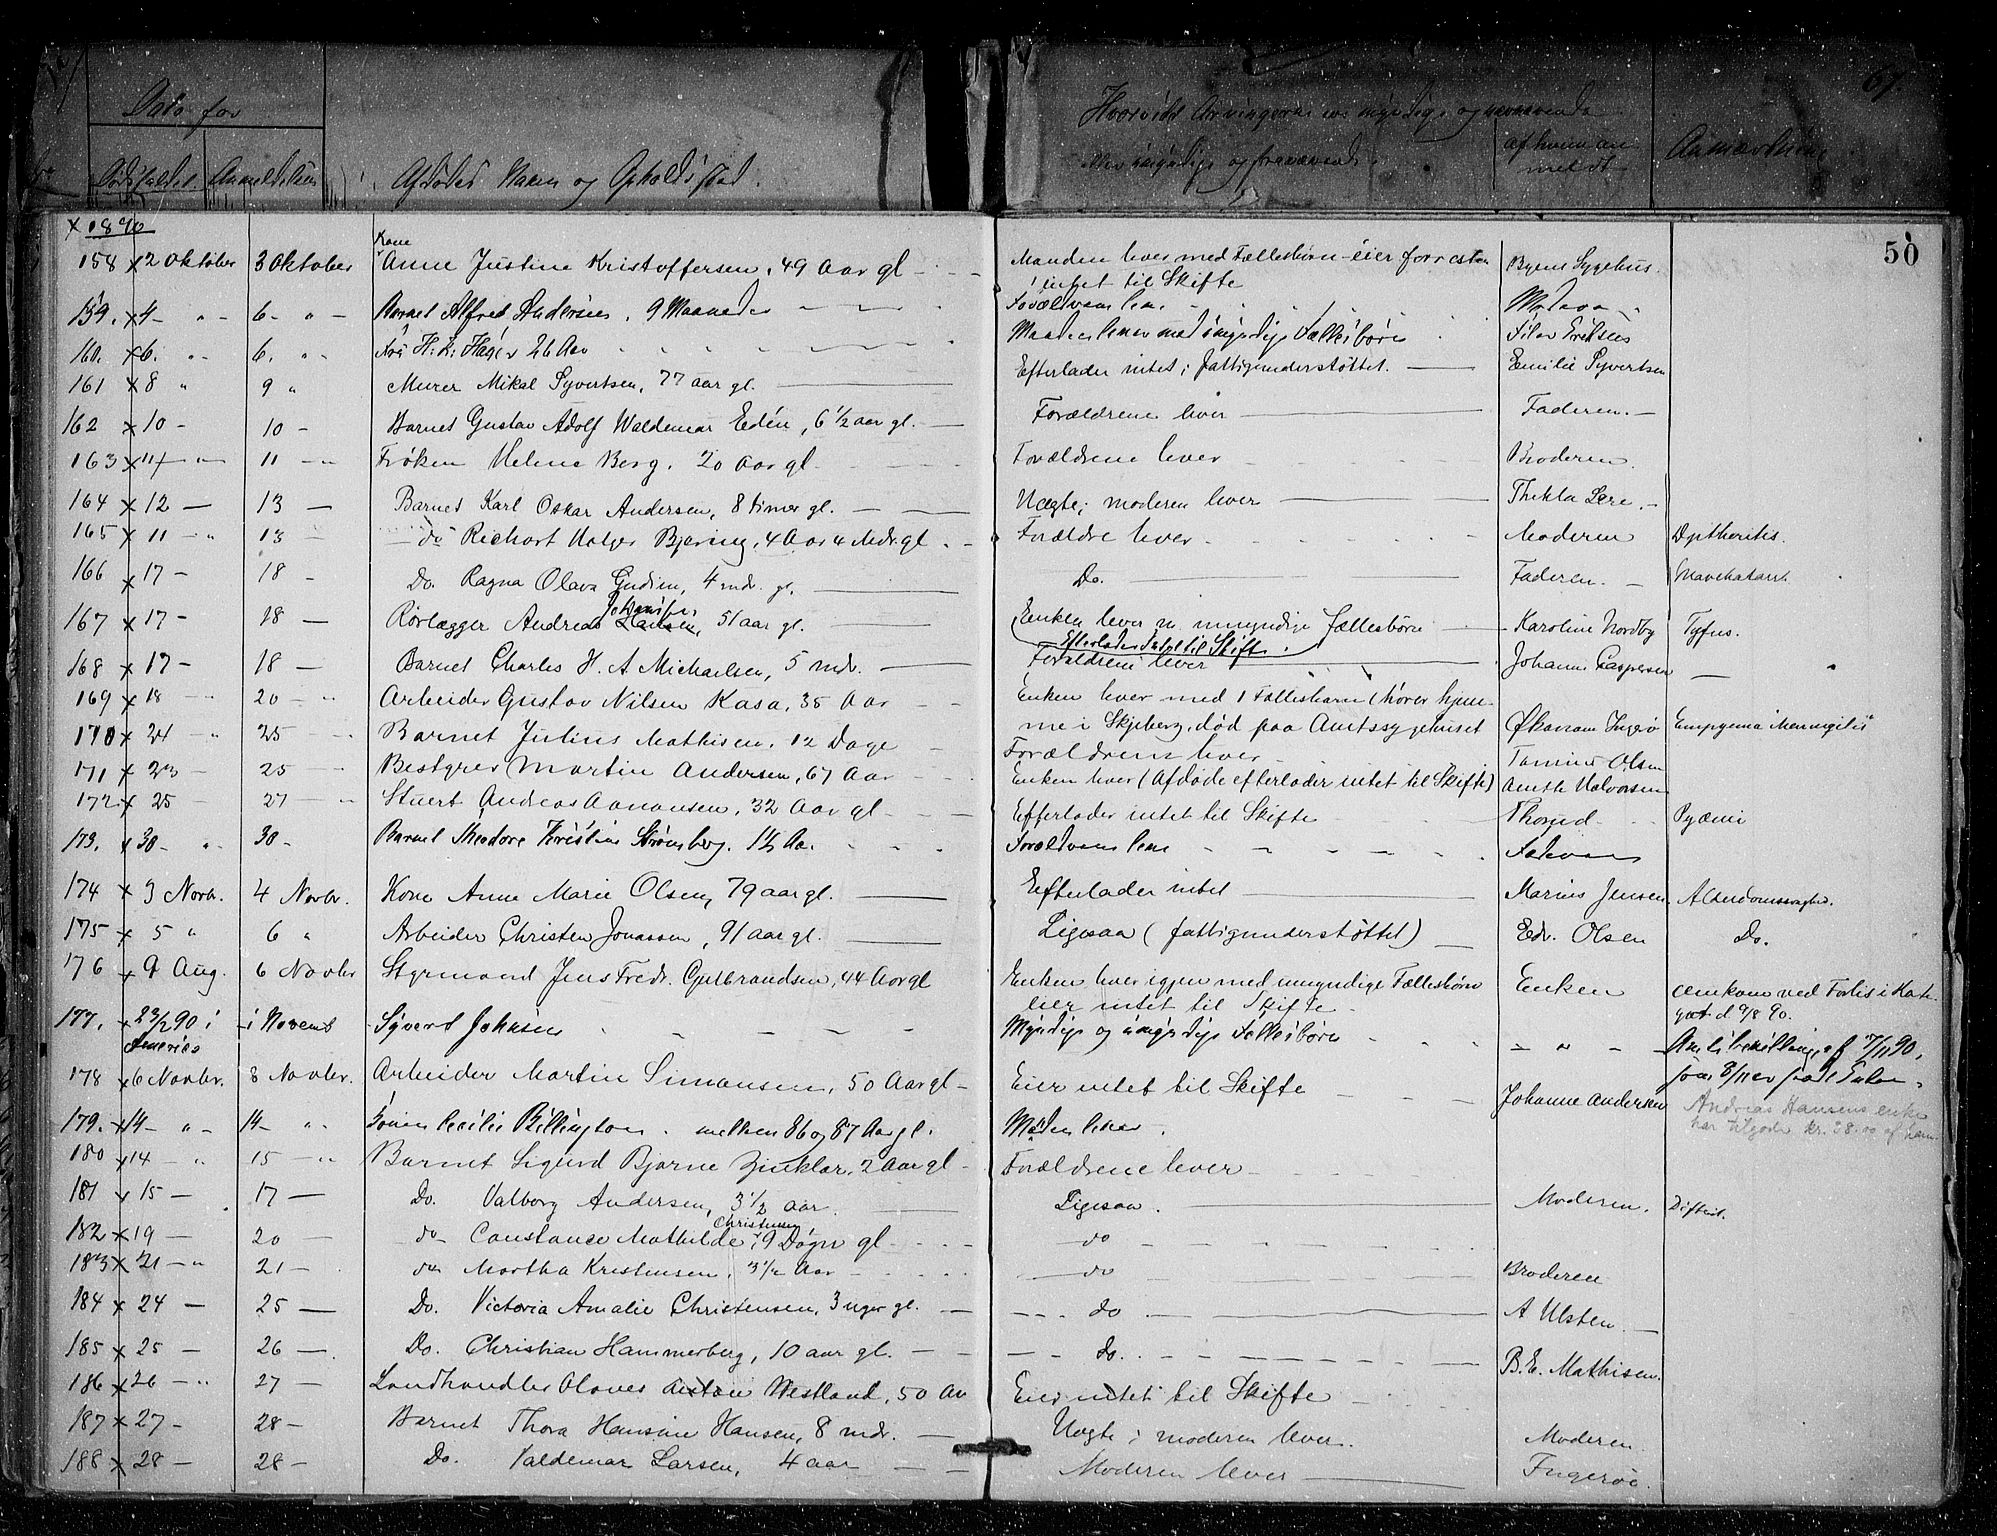 Dato for
Dødsfaldet. Anmeldelsen
Afdødes Navn og Opholdssted.
Hvorvidt Arvingerne ere myndige og nærværende
eller umyndige og fraværende.
af hvem an-
meldt
Anmærkning
67.
50
x 1890
158 x 2 Oktober 3 Oktober Kone Anne Justine Kristoffersen, 49 Aar gl - Manden lever med Fællesbørn - eier forresten Byens Sygehus.
intet til Skifte
159. x 4 - " - 6 - " - Barnet Alfred Andersen, 9 Maaneder - Forældrene leve
160. x 6. " 6. " Fru H. K. Hager 26 Aar Manden lever med umyndige Fællesbørn Eriksen
161 x 8 " 9 " Murer Mikal Syvertsen, 77 aar gl. Efterlader intet; fattigunderstøttet. Emilie Syvertsen
162 x 10 - 10 - Barnet Gustav Adolf Waldemar Edén, 6 1/2 aar gl. Forældrene lever Faderen. -
163 x 11 - 11 - " Frøken Helene Berg. 20 Aar gl. Forældrene lever Broderen.
164 x 12 - 13 - Barnet Karl Oskar Andersen, 8 timer gl. Uægte; moderen lever Thekla Lere. -
165 x 11 - " 13 - do Richart Holger Bjering, 4 Aar 4 Mdr. gl. Forældre lever Moderen Dptheritis.
166 x 17 - 18 - Do. Ragna Olava Gudim, 4 mdr. gl. Do. Faderen. - Mavekatarrh
167 x 17 - 18 - Rørlægger Andreas Hansen, 51 aar gl. Enken lever m. umyndige fællesbørn Karoline Nordby Tyfus.
Efterlader intet til Skifte.
168 x 17 - 18 - Barnet Charles H. A. Michaelsen, 5 mdr. Forældrene lever Johanne Caspersen -
169 x 18 - " 20 - " Arbeider Gustav Nilsen Kasa, 35 Aar Enken lever med 1 Fællesbarn (hører hjem-
170 x 24 - " 25 - Barnet Julius Mathisen. 12 Dage me i Skjeberg, død paa Amtssygehuset Økonom Ingerø Empyema "Menengitis"
Forældrene lever
171 x 23 - 25 - Bestyrer Martin Andersen, 67 Aar Enken lever (Afdøde efterlader intet til Skifte) Olsen
172 x 25 - 27 - " Stuert Andreas Aanonsen, 32 Aar gl - Efterlader intet til Skifte Anethe Halvorsen
173. x 30 - " 30 - Barnet Theodore Kristine Strømberg. 1 1/2 Aar. Forældrene leve Pyæmi
174 x 3 Novbr. 4 Novbr. Kone Anne Marie Olsen, 79 aar gl. Efterlader intet Marius Jensen Alderdomssvaghed.
175 x 5 " 6 " Arbeider Christen Jonassen, 91 aar gl. Ligesaa (fattigunderstøttet) Edv. Olsen Do.
176 x 9 Aug. 6 Novbr Styrmand Jens Fredr. Gulbrandsen, 44 Aar gl Enken lever igjen med umyndige Fællesbørn Enken omkom ved Forlis i Kate-
eier intet til Skifte. gat d 9/8 90.
177. x 23/2 90 i Amerika i Novemb Syvert Johnsen Myndige og umyndige Fællesbørn - " - 17/11 90.
178 x 6 Novbr. 8 Novbr. Arbeider Martin Simonsen, 50 Aar gl - Eier intet til Skifte Johanne Andersen
Andreas Hansens enke
har tilgode kr. 28.00 af ham.
179. x 14 - " - 14 - " Cecilie Billington. mellem 86 og 87 Aar gl. Manden lever.
180 x 14 - " 15 - " Barnet Sigurd Bjarne Zinklar. 2 Aar gl - Forældrene lever
181 x 15 - 17 - Do. Valborg Andersen, 3 1/2 aar. Ligesaa. Moderen. Difterit.
182 x 19 - 20 - do Constance Mathilde Christensen, 9 Døgn gl. do
183 x 21 - " 21 - do Martha Kristensen, 3 1/2 Aar do Broderen
184 x 24 - 25 - Do. Victoria Amalie Christensen, 3 uger gl. do A Ulsten. -
185 x 25 - 26 - Do. Christian Hammerberg, 10 aar gl. Do. B. E. Mathisen.
186 x 26 - " 27 - Landhandler Olaves Anton Westland, 50 Aar Eier intet til Skifte
187 x 27 - 28 - Barnet Thora Hansine Hansen, 8 mdr. Uægte; moderen lever. Moderen.
188 x 28 - 28 - Do. Valdemar Larsen, 4 aar Moderen lever Ingerøe.